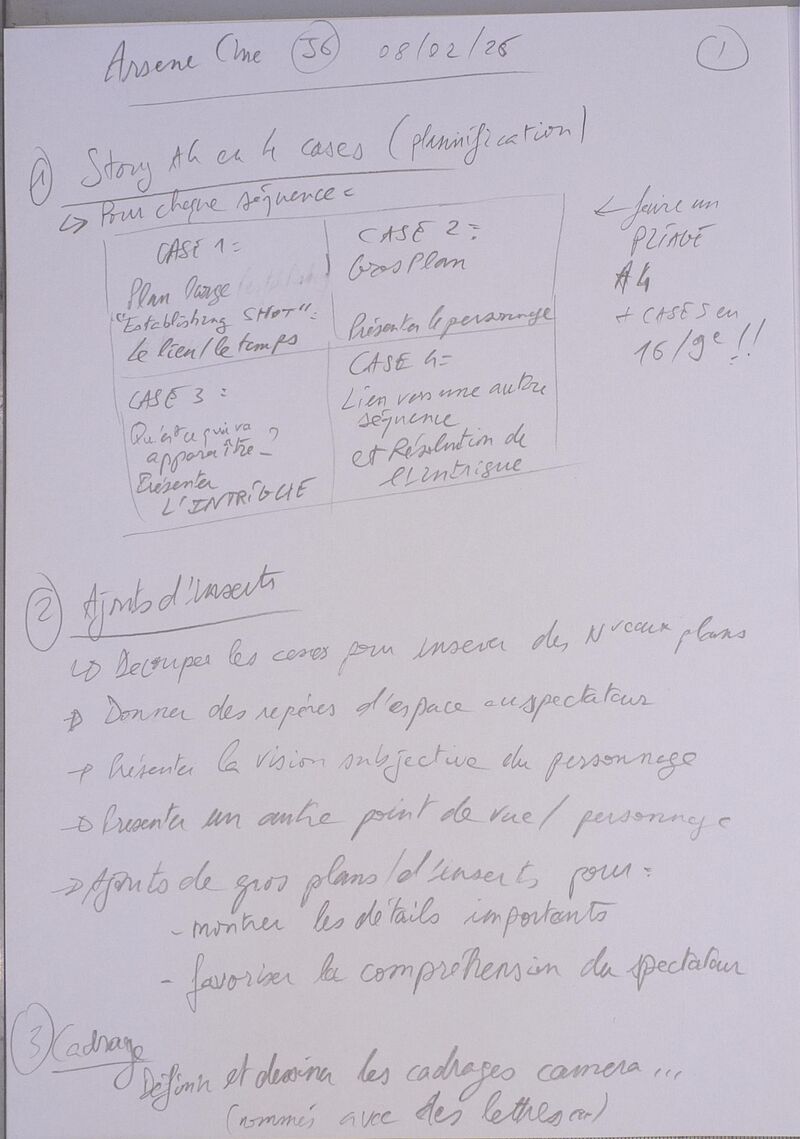 Arsene Cine J6 08/02/26
1
1 Story A4 en 4 cases (plannification)
↳ Pour chaque séquence =
CASE 1 =
Plan large
"Establishing SHOT" =
Le lieu/le temps
CASE 2 =
Gros Plan
Présenter le personnage
CASE 3 =
Qu'est ce qui va
apparaître ?
Présenter
L'INTRIGUE
CASE 4 =
Lien vers une autre
séquence
et Résolution de
l'intrigue
← faire un
PLIAGE
A4
+ CASES en
16/9e !!
2 Ajouts d'inserts
↳ Découper les cases pour inserer des Nveaux plans
→ Donner des repères d'espace au spectateur
→ Présenter la vision subjective du personnage
→ Presenter un autre point de vue / personnage
→ Ajouts de gros plans/d'inserts pour =
- montrer les détails importants
- favoriser la compréhension du spectateur
3 Cadrage
Définir et dessiner les cadrages camera...
(nommés avec des lettres)